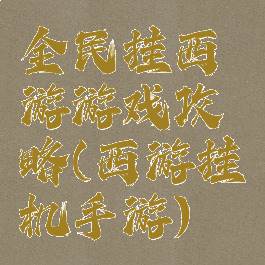 全民挂西
游游戏攻
略(西游挂
机手游)